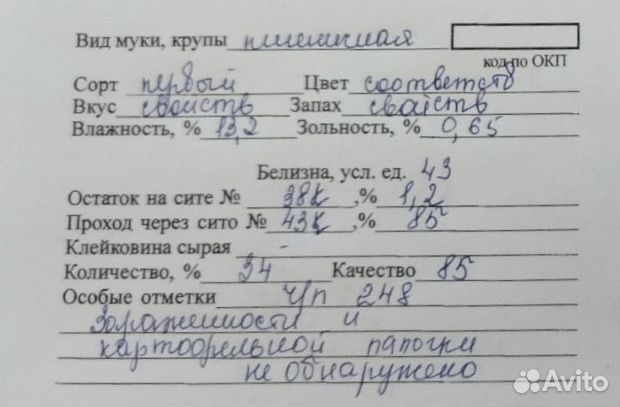 Вид муки, крупы пшеничная
код по ОКП
Сорт первый Цвет соответств
Вкус свойств Запах свойств
Влажность, % 13,2 Зольность, % 0,65
Белизна, усл. ед. 43
Остаток на сите № 38к ,% 1,2
Проход через сито № 43к ,% 85
Клейковина сырая -
Количество, % 34 Качество 85
Особые отметки ч/п 248
Зараженности и
картофельной палочки
не обнаружено
Avito